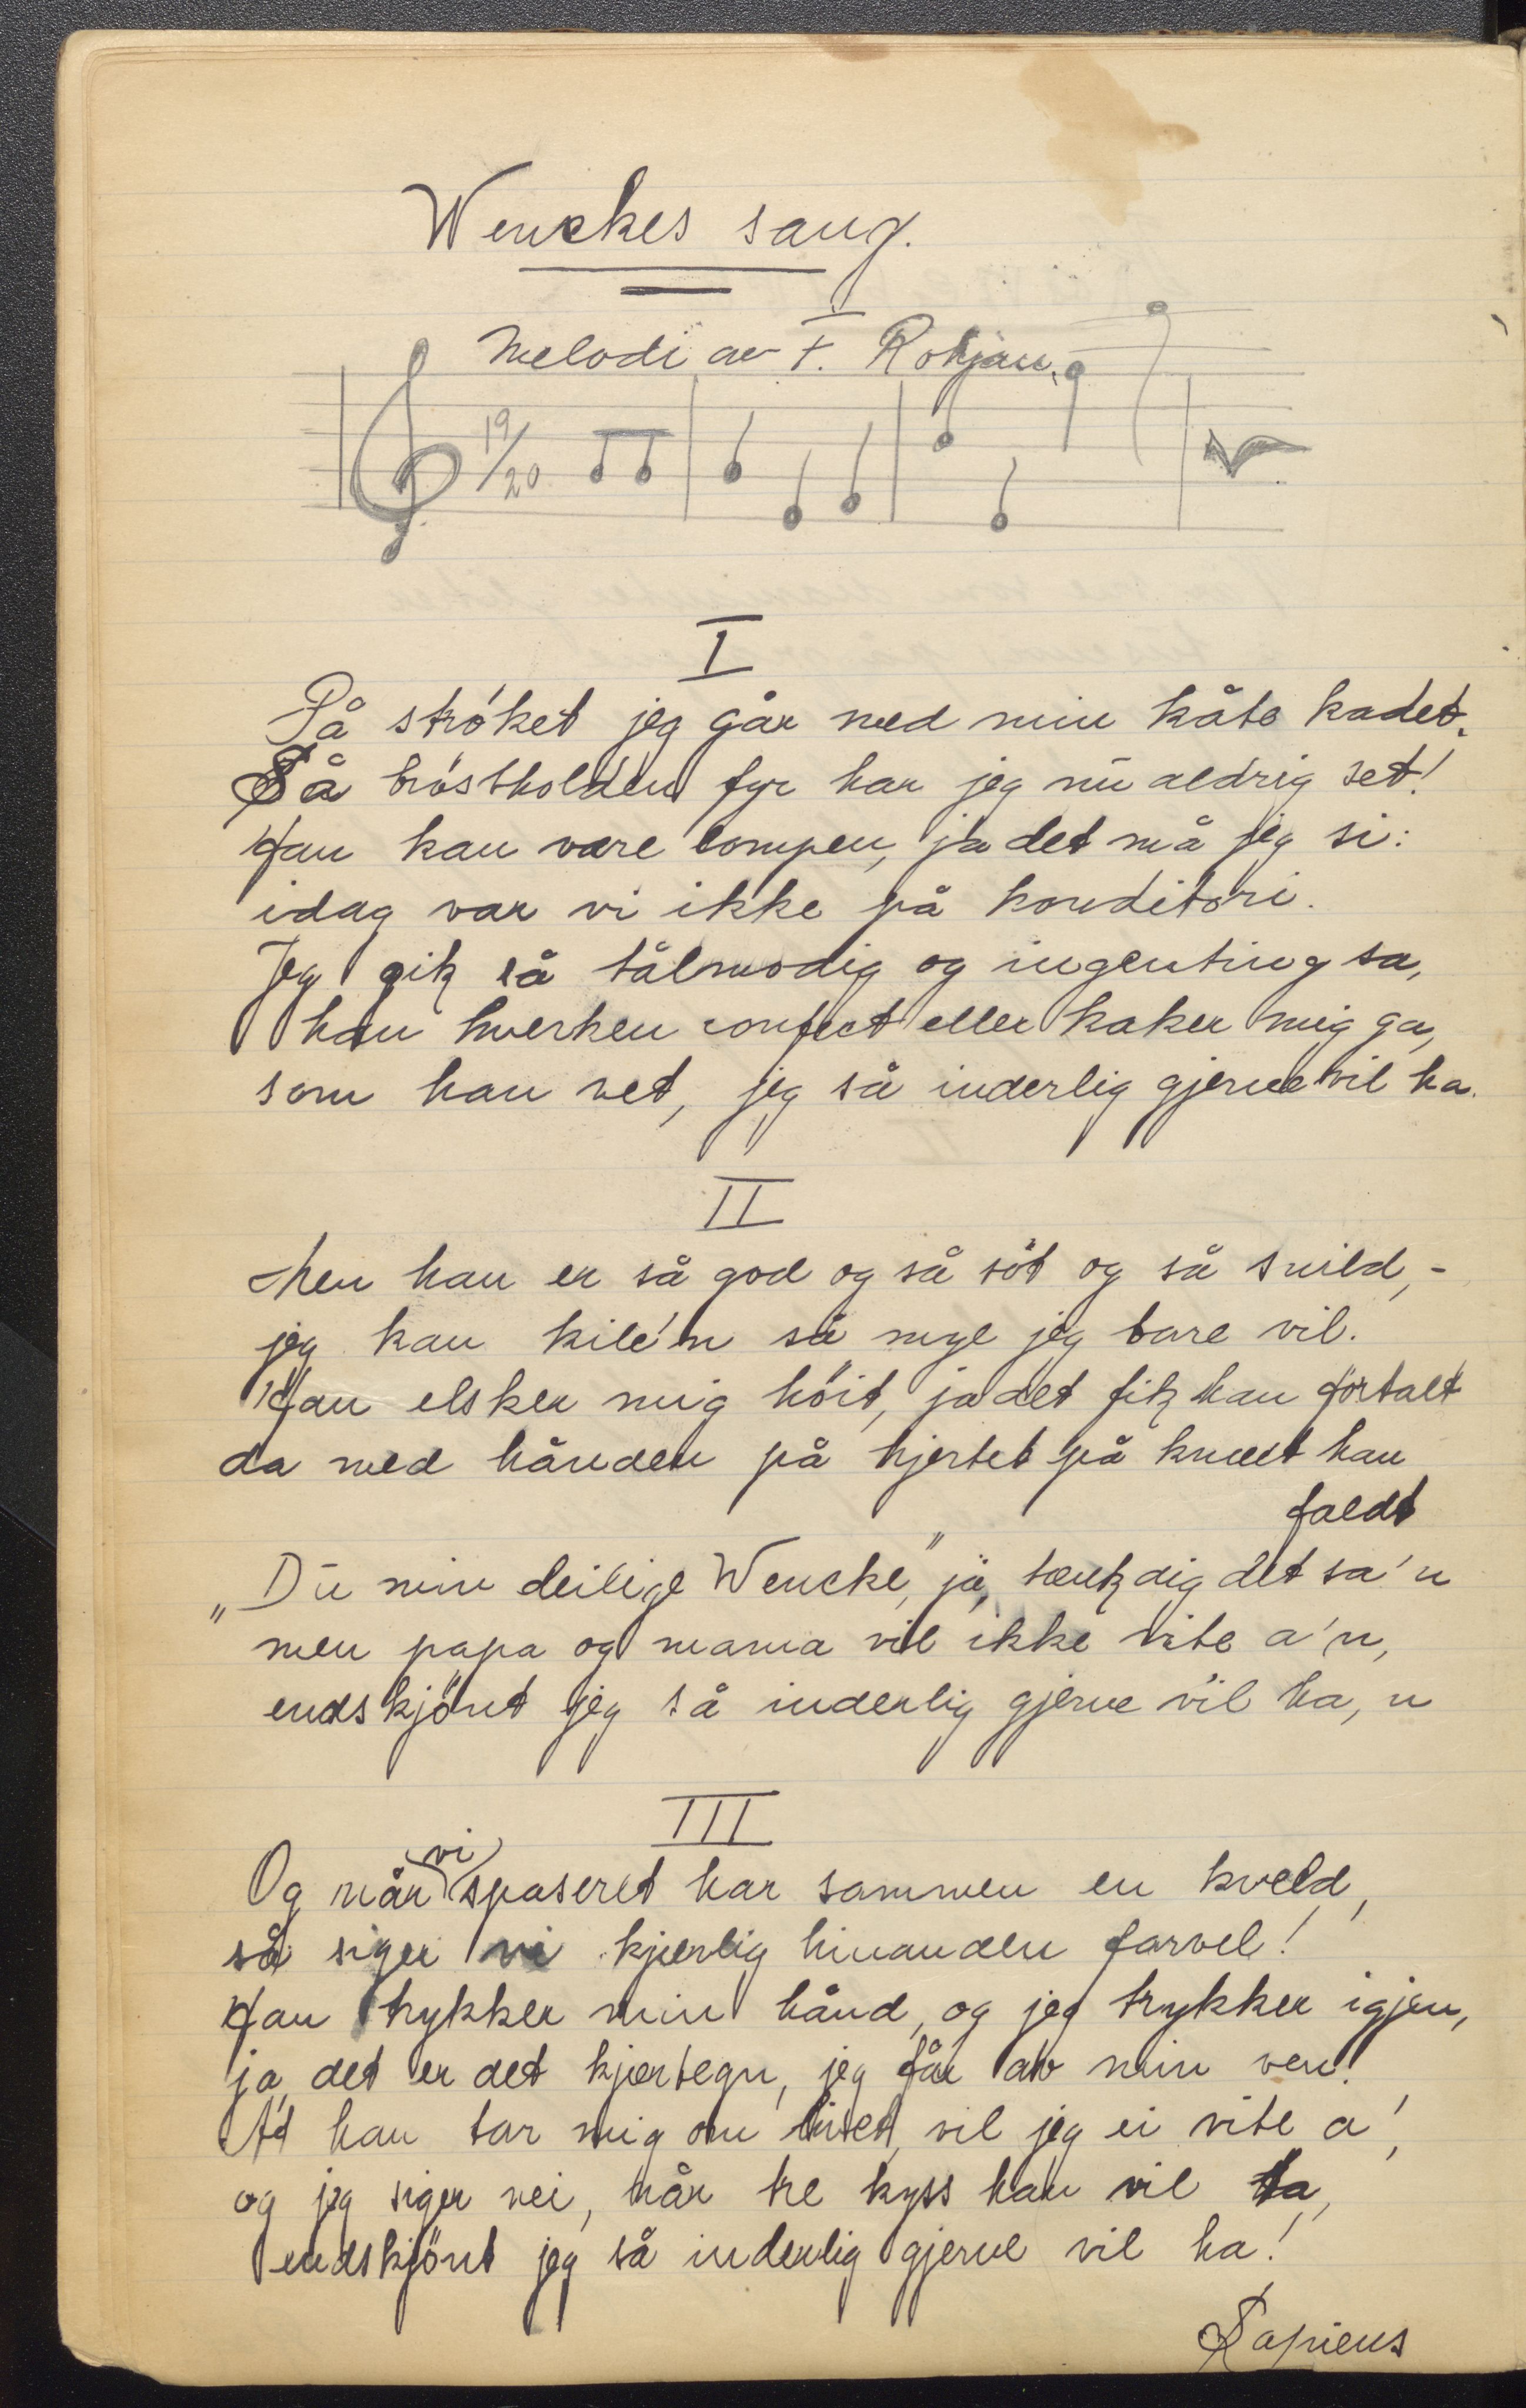 Wenckes sang.
Melodi av F. Rokjan.
19/20
I
På strøket jeg går med min kåte kadet.
Så brøstholden fyr har jeg nu aldrig set!
Han kan være lompen, ja det må jeg si:
idag var vi ikke på konditori.
Jeg gik så tålmodig og ingenting sa,
han hverken confect eller kaker mig ga,
som han vet, jeg så inderlig gjerne vil ha.
II
Men han er så god og så söt og så snild, -
jeg kan kile'n så mye jeg bare vil.
Han elsker mig höit, ja det fik han fortalt
da med hånden på hjertet på knæet han
faldt
„Du min deilige Wencke," ja, tænk dig det sa'n
men papa og mama vil ikke vite a'n,
endskjönt jeg så inderlig gjerne vil ha,n
III
Og når vi spaseret har sammen en kveld,
så siger vi kjærlig hinanden farvel!
Han trykker min hånd, og jeg trykker igjen,
ja, det er det kjærtegn, jeg får av min ven!
At han tar mig om livet, vil jeg ei vite a',
og jeg siger nei, når tre kyss han vil ta,
endskjönt jeg så inderlig gjerne vil ha!
Sapiens